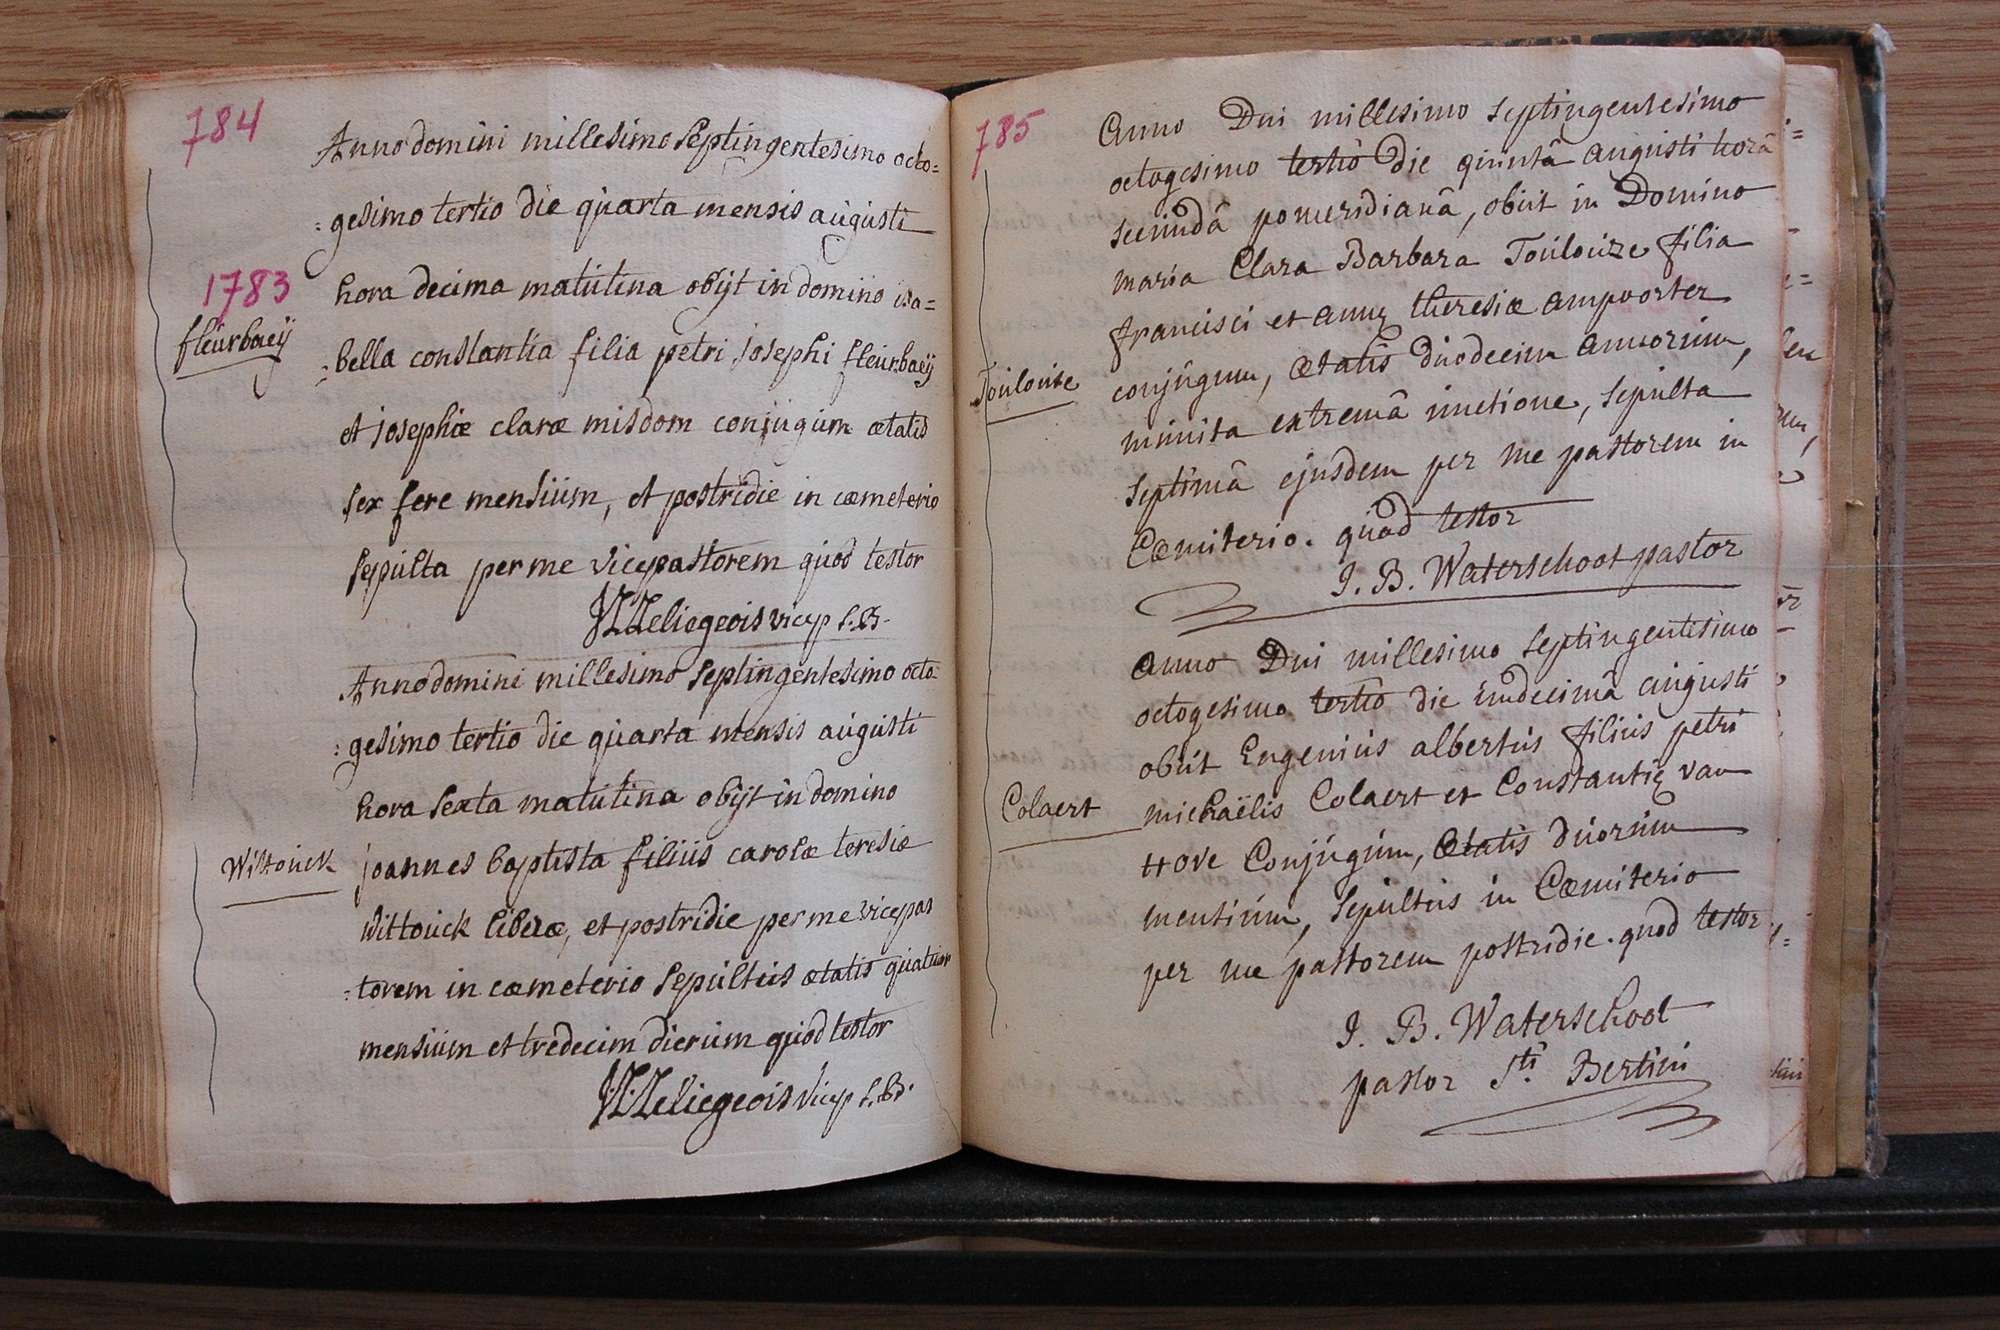 784
Anno domini millesimo septingentesimo octo=
=gesimo tertio die quarta mensis augusti
1783
hora decima matutina obijt in domino isa=
fleurbaeij
=bella constantia filia petri josephi fleurbaeij
et josephæ claræ misdom conjugum ætatis
sex fere mensium, et postridie in cæmeterio
sepulta per me vicepastorem quod testor
Leliegeois vicep S.B.
Anno domini millesimo septingentesimo octo=
=gesimo tertio die quarta mensis augusti
hora sexta matutina obijt in domino
Wittouck
joannes baptista filius carolæ teresiæ
wittouck liberæ, et postridie per me vicepas
=torem in cæmeterio sepultus ætatis quatuor
mensium et tredecim dierum quod testor
Leliegeois vicep S.B.
785
Anno Dni millesimo septingentesimo
octogesimo tertiô die quintâ augusti horâ
secundâ pomeridianâ, obiit in Domino
maria Clara Barbara Toulouze filia
francisci et annę theresiæ ampoorter
Toulouse
conjûgum, ætatis duodecim annorum,
munita extremâ unctione, sepulta
septimâ ejusdem per me pastorem in
Cœmiterio. quod testor
J. B. Waterschoot pastor
anno Dni millesimo septingentesimo
octogesimo tertiô die undecimâ augusti
obiit Eugenius albertus filius petri
Colaert
michaëlis Colaert et Constantię van
hove Conjúgum, Ætatis duorum
mensium, sepultus in Cœmiterio
per me pastorem postridie. quod testor
J. B. Waterschoot
pastor Sti Bertini